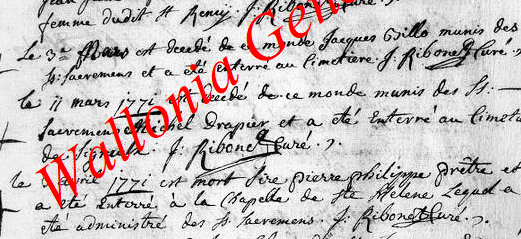 femme dudit St Remy. J. Ribonet Curé.
Le 3e Mars est decedé de ce monde Jacques Gillo munis des
St. sacremens et a été enterré au Cimetiere. J. Ribonet Curé.
Le 11 mars 1771 est decedé de ce monde munis des SS.
Sacremens Michel Drapier et a été Enterré au Cimetie
de J. Ribonet Curé.
le avril 1771 est mort Sire pierre philippe prêtre et
a été Enterré a la Chapelle de Ste helene Lequel a
eté administré des SS sacremens. J. Ribonet Curé.
Wallonia Gen